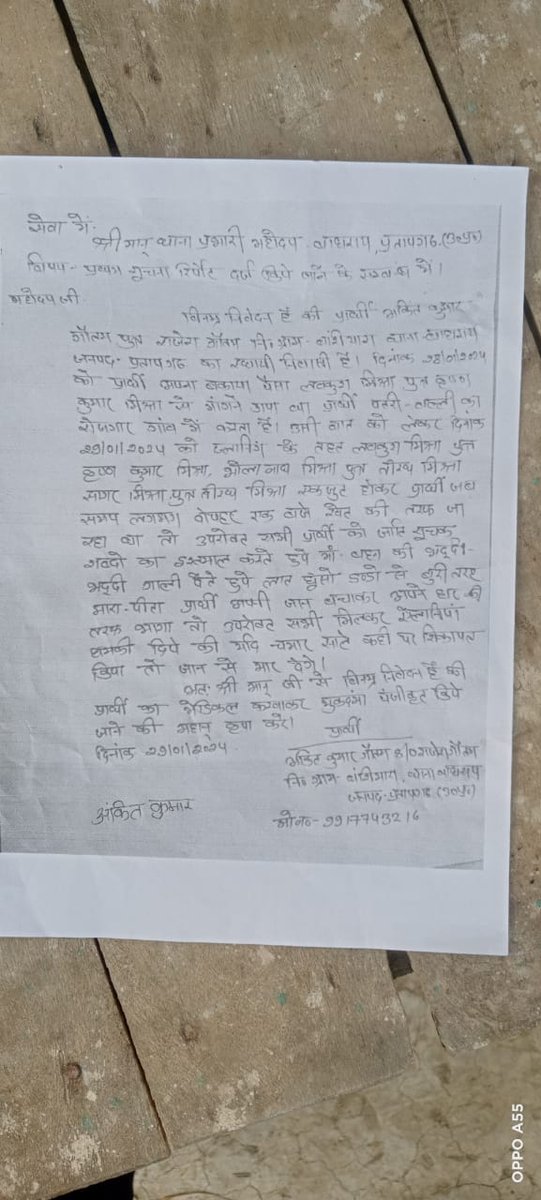 सेवा में,
श्री मान् थाना प्रभारी महोदय बाघराय, प्रतापगढ़ (उ०प्र०)
विषय- प्रथम सूचना रिपोर्ट दर्ज किये जाने के सम्बन्ध में।
महोदय जी
विनम्र निवेदन है की प्रार्थी अंकित कुमार
गौतम पुत्र राजेश गौतम नि० ग्राम- थाना बाघराय
जनपद- प्रतापगढ़ का स्थायी निवासी है। दिनांक
को प्रार्थी अपना बकाया पैसा लवकुश मिश्रा पुत्र कृष्ण
कुमार मिश्रा से मांगने गया था प्रार्थी का
रोजगार गांव में करता है। उसी बात को लेकर दिनांक
29/01/2024 को प्लानिंग के तहत लवकुश मिश्रा पुत्र
कृष्ण कुमार मिश्रा, भोला नाथ मिश्रा पुत्र तीरथ मिश्रा
सागर मिश्रा पुत्र तीरथ मिश्रा एकजुट होकर प्रार्थी जब
समय लगभग दोपहर एक बजे खेत की तरफ जा
रहा था तो उपरोक्त सभी प्रार्थी को जाति सूचक
शब्दो का इस्तमाल करते हुये माँ- बहन की भद्दी-
भद्दी गाली देते हुये लात घूसो डन्डो से बुरी तरह
मारा-पीटा प्रार्थी अपनी जान बचाकर अपने घर की
तरफ भागा तो उपरोक्त सभी मिलकर
धमकी दिये की यदि चमार साले कही पर शिकायत
किया तो जान से मार देंगे।
अतः श्री मान् जी से विनम्र निवेदन है की
प्रार्थी का मेडिकल करवाकर मुकदमा पंजीकृत किये
जाने की महान् कृपा करें।
प्रार्थी
दिनांक 29/01/2024
अंकित कुमार गौतम S/O राजेश गौतम
नि० ग्राम- थाना बाघराय
जनपद- प्रतापगढ़ (उ०प्र०)
अंकित कुमार
मो०न०- 9917743216
OPPO A55